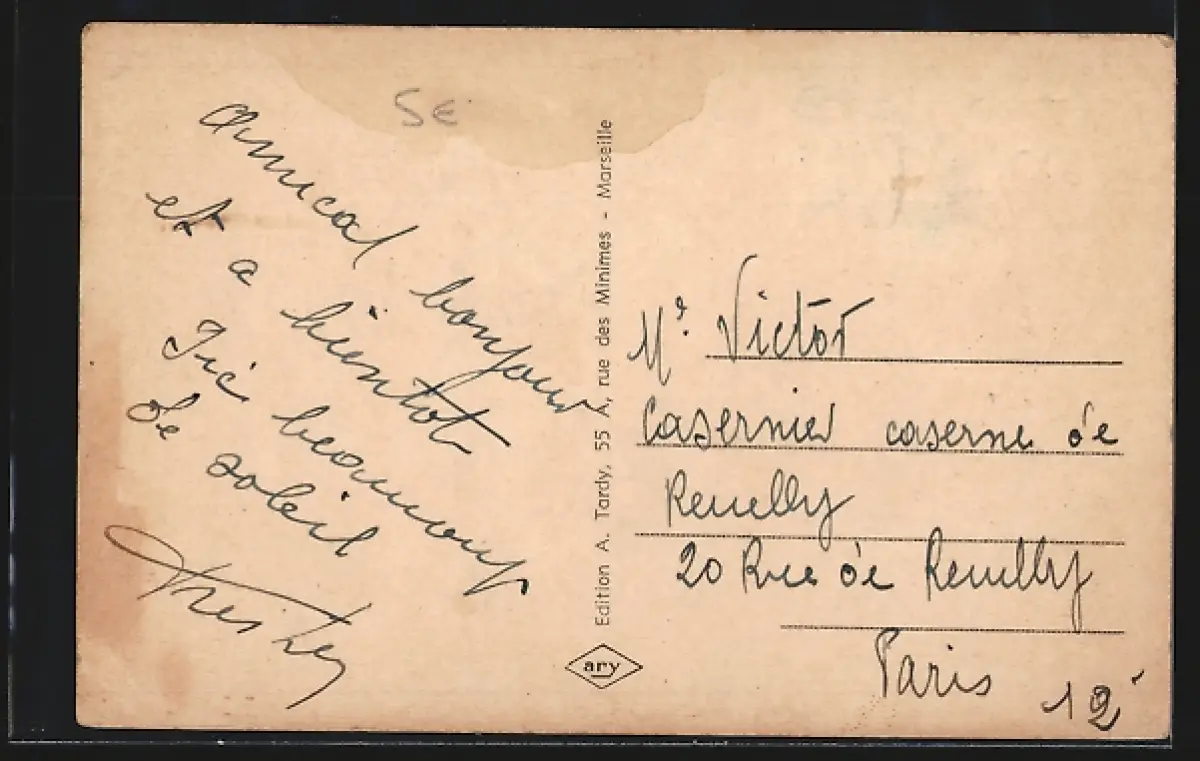 5€
amical bonjour
et a bientot
Ici beaucoup
de soleil
Edition A. Tardy, 55 A, rue des Minimes - Marseille
ary
Mr. Victor
Casernier caserne de
Reuilly
20 Rue de Reuilly
Paris 12